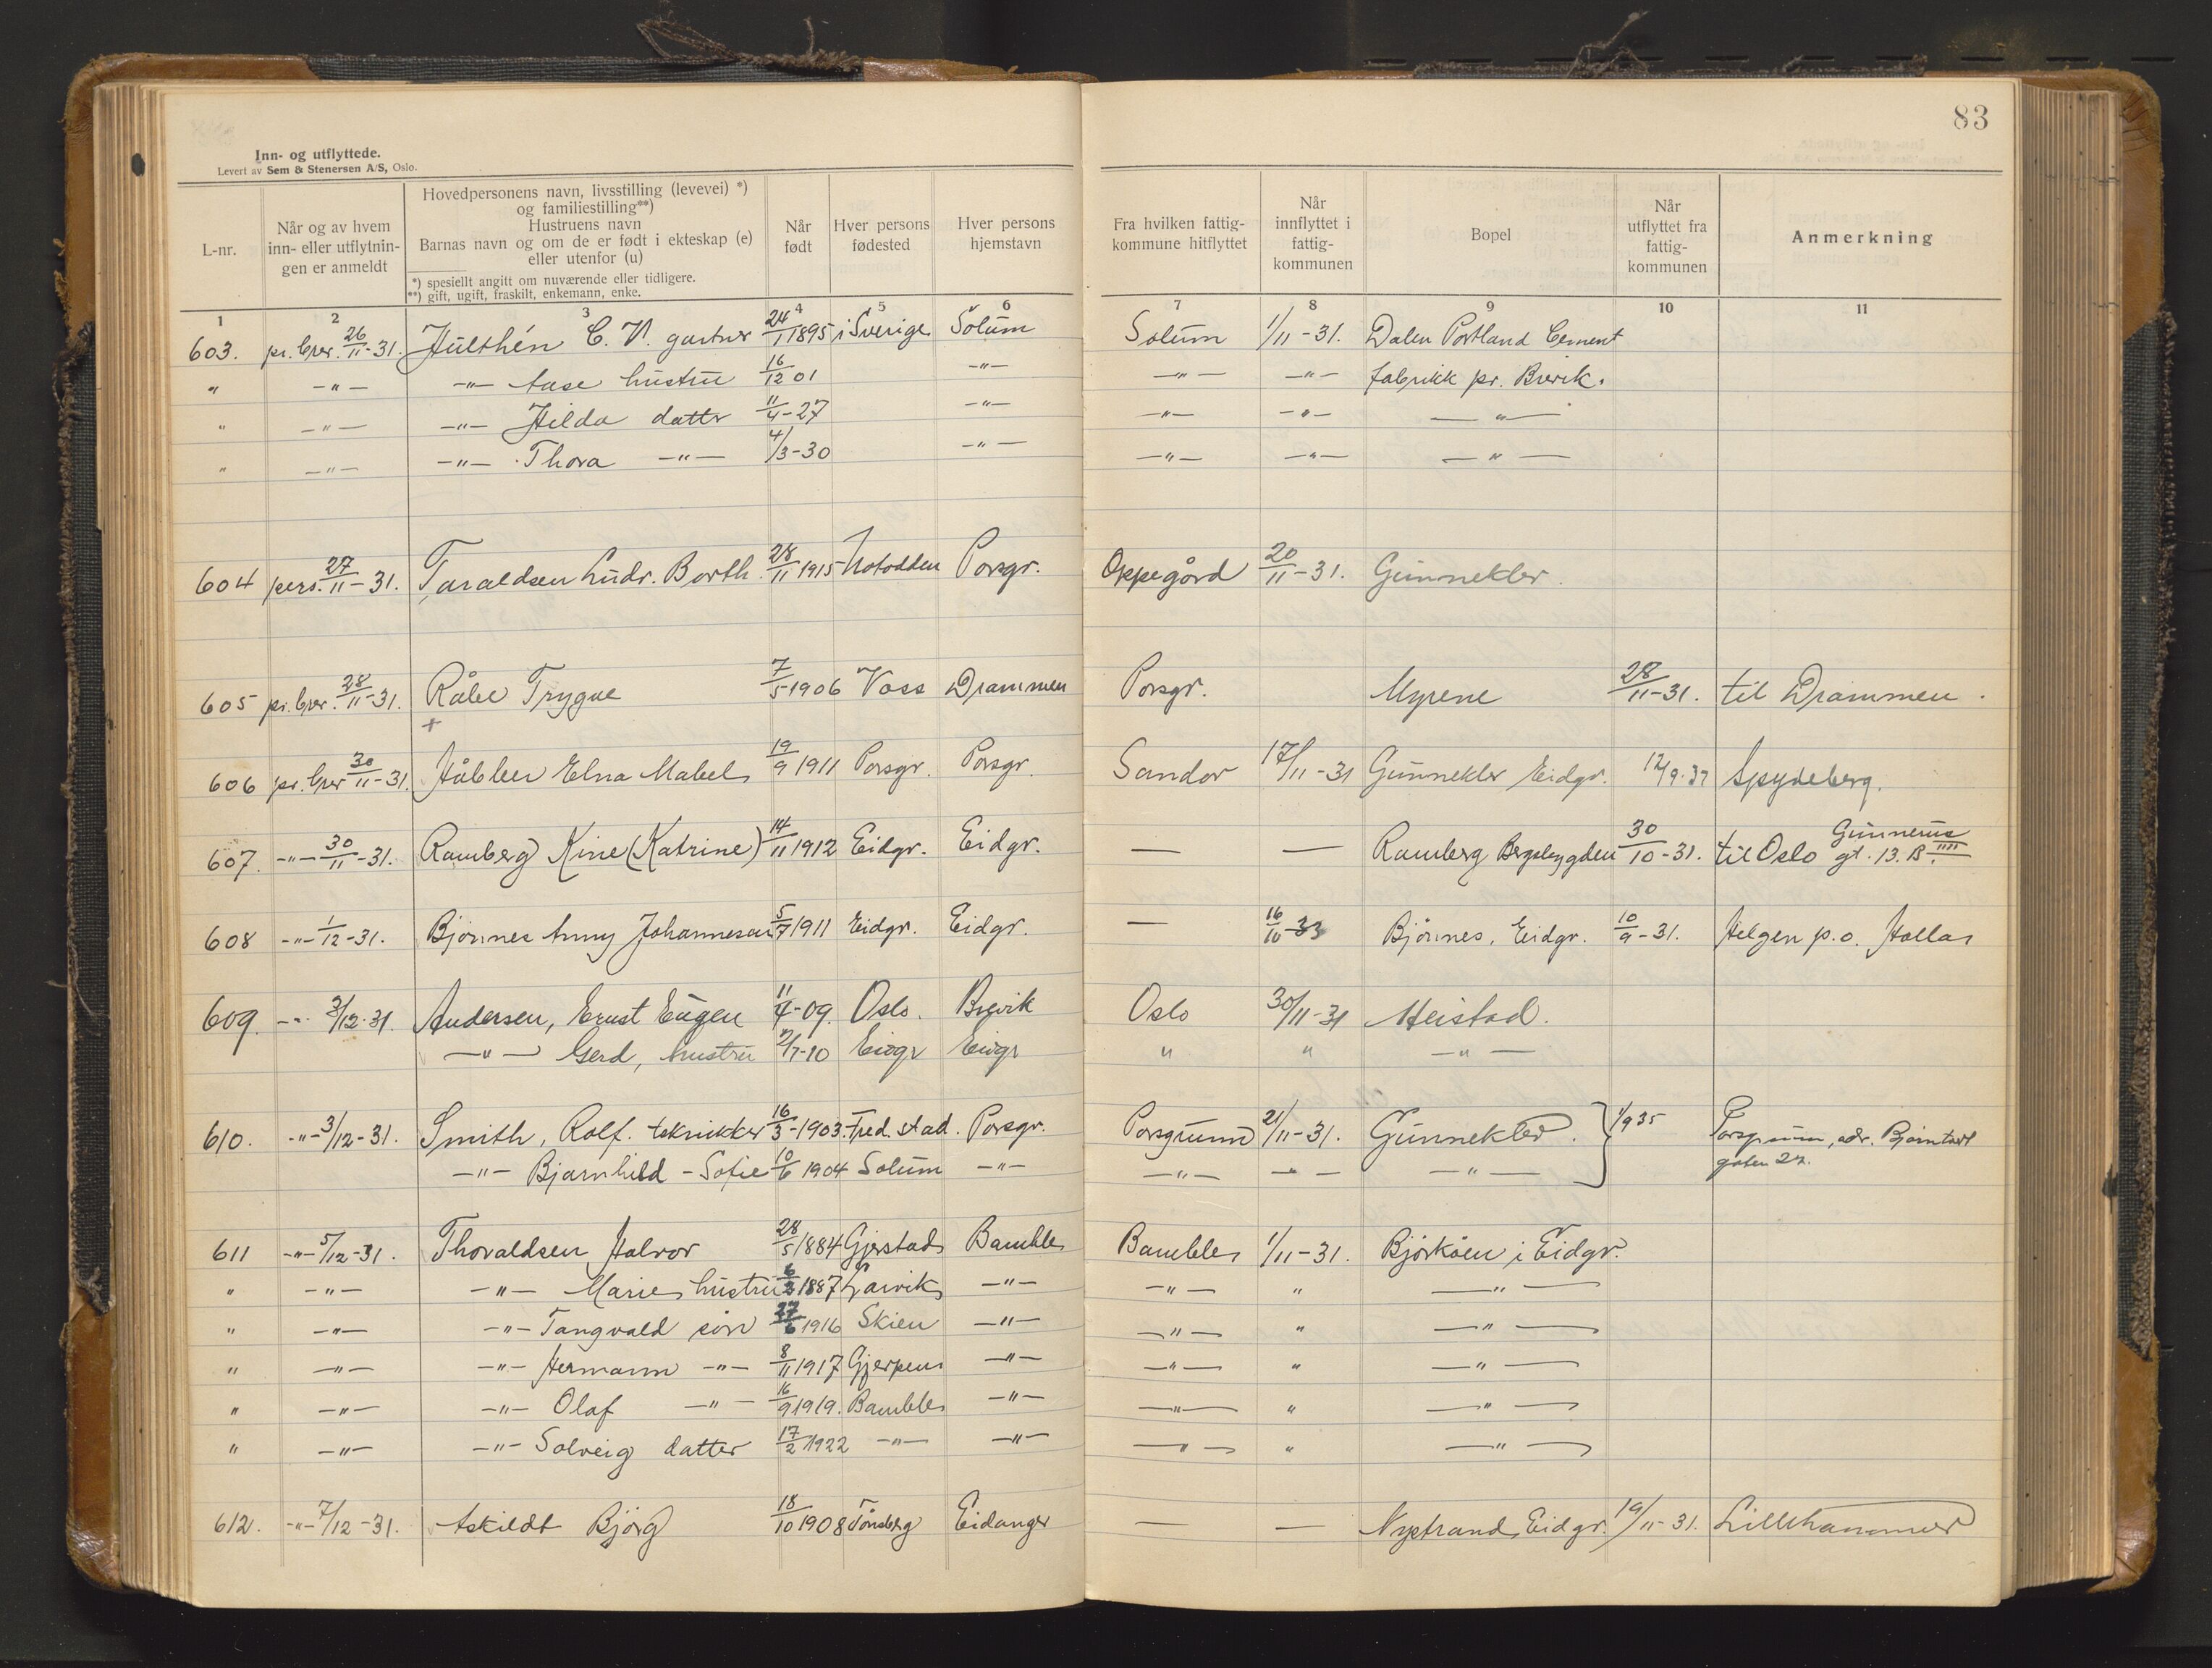 83
Inn- og utflyttede.
Levert av Sem & Stenersen A/S, Oslo.
L-nr.
Når og av hvem inn- eller utflytningen er anmeldt
Hovedpersonens navn, livsstilling (levevei) *)
og familiestilling**)
Hustruens navn
Barnas navn og om de er født i ekteskap (e)
eller utenfor (u)
*) spesiellt angitt om nuværende eller tidligere.
**) gift, ugift, fraskilt, enkemann, enke.
Når født
Hver persons fødested
Hver persons hjemstavn
Fra hvilken fattigkommune hitflyttet
Når innflyttet i fattigkommunen
Bopel
Når utflyttet fra fattigkommunen
Anmerkning
1 2 3 4 5 6 7 8 9 10 11
603. pr. brev. 26/11-31. Hulthén C. V. gartner 24/1 1895 i Sverige Solum Solum 1/11-31. Dalen Portland Cement
" -"- -"- Aase hustru 16/12 01 -"- -"- -"- fabrikk pr. Brevik.
" -"- -"- Hilda datter 11/4-27 -"- -"- -"- -"-
" -"- -"- Thora -"- 4/3-30 -"- -"- -"- -"-
604 pers. 27/11-31. Taraldsen Ludv. Borth. 28/11 1915 Notodden Porsgr. Oppegård 20/11-31. Gunnekler.
605 pr. brev. 28/11-31. Råbe Trygve 7/5-1906 Voss Drammen Porsgr. Myrene 28/11-31. til Drammen.
+
606 pr. brev 30/11-31. Elna Mabel 19/9 1911 Porsgr. Porsgr. Sandar 17/11-31 Gunnekler Eidgr. 12/9-37 Spydeberg.
607. -"- 30/11-31. Ramberg Kine (Katrine) 14/11 1912 Eidgr. Eidgr. — — Ramberg Bergsbygden 30/10-31. til Oslo Gunnerus gt. 13. B
608 -"- 1/12-31. Bjønnes Anny Johannesen 5/7 1911 Eidgr. Eidgr. — 16/10-33 Bjønnes, Eidgr. 10/9-31. Helgen p.o. Holla
609. -"- 3/12-31. Andersen, Ernst Eugen 11/4-09. Oslo. Brevik Oslo 30/11-31 Heistad.
-"- Gerd, hustru 2/7-10 Eidgr Eidgr " " -"-
610. -"- 3/12-31. Smith, Rolf. tekniker 16/3-1903. Fred.stad. Porsgr. Porsgrunn 21/11-31. Gunnekler. } 1/9 35 Porsgrunn, adr. Bjørntvedt
-"- Bjarnhild - Sofie 10/6 1904 Solum -"- -"- -"- -"- gaten 27.
611 -"- 5/12-31. Thoraldsen Halvor 28/5 1884 Gjerstad Bamble Bamble 1/11-31. Bjørkøen i Eidgr.
" -"- -"- Marie hustru 6/3 1887 Larvik -"- -"- " -"-
" -"- -"- Tangvald søn 27/6 1916 Skien -"- -"- " -"-
" -"- -"- Hermann -"- 8/11 1917 Gjerpen -"- -"- " -"-
" -"- -"- Olaf -"- 16/9 1919. Bamble -"- -"- " -"-
" -"- -"- Solveig datter 17/2 1922 -"- -"- -"- " -"-
612. -"- 7/12-31. Askildt Bjørg 18/10 1908 Tønsberg Eidanger — — Nystrand, Eidgr. 19/11-31. Lillehammer